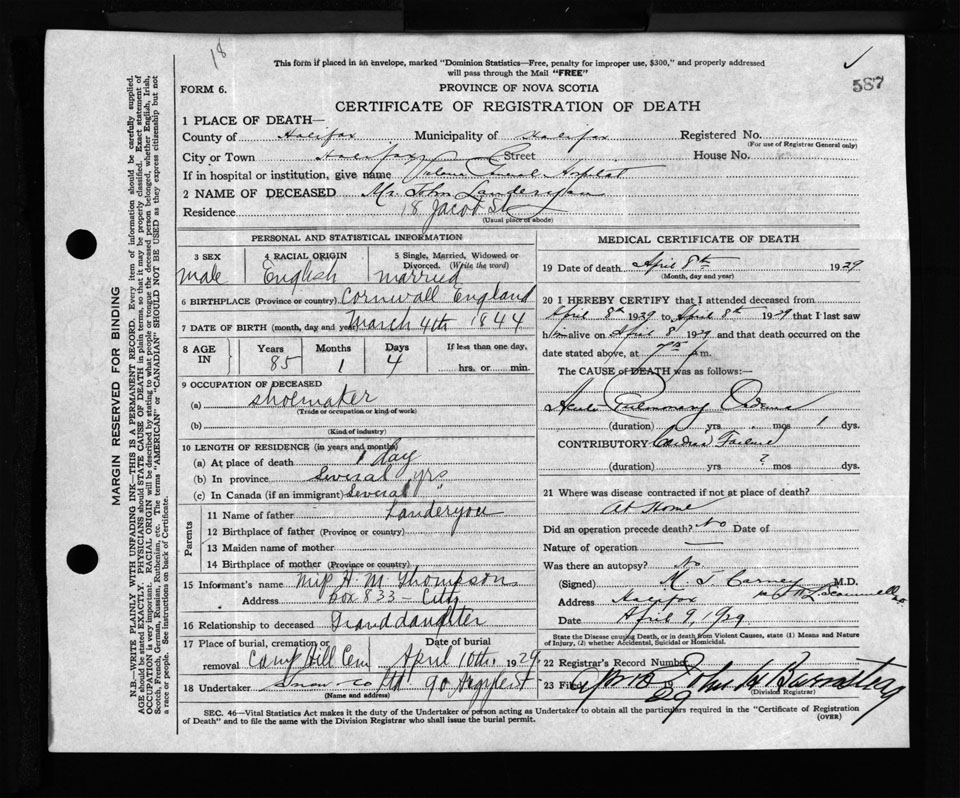 18
✓
587
This form if placed in an envelope, marked "Dominion Statistics—Free, penalty for improper use, $300," and properly addressed
will pass through the Mail "FREE"
FORM 6.
PROVINCE OF NOVA SCOTIA
CERTIFICATE OF REGISTRATION OF DEATH
1 PLACE OF DEATH—
County of Halifax Municipality of Halifax Registered No.
(For use of Registrar General only)
City or Town Halifax Street House No.
If in hospital or institution, give name General Hospital
2 NAME OF DECEASED Mr. John Landeryou
Residence 18 Jacob St
(Usual place of abode)
PERSONAL AND STATISTICAL INFORMATION
3 SEX 4 RACIAL ORIGIN 5 Single, Married, Widowed or
Divorced. (Write the word)
male English married
6 BIRTHPLACE (Province or country) Cornwall England
7 DATE OF BIRTH (month, day and year) March 4th 1844
8 AGE IN Years Months Days If less than one day,
85 1 4 hrs. or min.
9 OCCUPATION OF DECEASED
(a) shoemaker
(Trade or occupation or kind of work)
(b)
(Kind of industry)
10 LENGTH OF RESIDENCE (in years and months)
(a) At place of death 1 day
(b) In province Several yrs
(c) In Canada (if an immigrant) Several
Parents
11 Name of father Landeryou
12 Birthplace of father (Province or country)
13 Maiden name of mother
14 Birthplace of mother (Province or country)
15 Informant's name H. M. Thompson
Address Box 833 — City
16 Relationship to deceased Granddaughter
17 Place of burial, cremation or removal Date of burial
Camp Hill Cem April 10th 1929
18 Undertaker Snow Co Ltd 90 Argyle St
(Name and address)
MEDICAL CERTIFICATE OF DEATH
19 Date of death April 8th 1929
(Month, day and year)
20 I HEREBY CERTIFY that I attended deceased from
April 8th 1929 to April 8th 1929 that I last saw
him alive on April 8 1929 and that death occurred on the
date stated above, at p.m.
The CAUSE of DEATH was as follows:—
Acute Pulmonary Edema
(duration) yrs. mos 1 dys.
CONTRIBUTORY Cardiac Failure
(duration) yrs ? mos dys.
21 Where was disease contracted if not at place of death?
At Home
Did an operation precede death? No Date of
Nature of operation —
Was there an autopsy? No
(Signed) M. J. Carney M.D.
Address Halifax
Date April 9, 1929
State the Disease causing Death, or in death from Violent Causes, state (1) Means and Nature
of Injury, (2) whether Accidental, Suicidal or Homicidal.
22 Registrar's Record Number
23 Filed John
(Division Registrar)
SEC. 46—Vital Statistics Act makes it the duty of the Undertaker or person acting as Undertaker to obtain all the particulars required in the "Certificate of Registration
of Death" and to file the same with the Division Registrar who shall issue the burial permit.
(OVER)
MARGIN RESERVED FOR BINDING
N.B.—WRITE PLAINLY WITH UNFADING INK—THIS IS A PERMANENT RECORD. Every item of information should be carefully supplied.
AGE should be stated EXACTLY. PHYSICIANS should STATE CAUSE OF DEATH in plain terms, so that it may be properly classified. Exact statement of
OCCUPATION is very important. RACIAL ORIGIN will be described by stating to what people or tongue the deceased person belonged, whether English, Irish,
Scotch, French, German, Russian, Ruthenian, etc. The terms "AMERICAN" or "CANADIAN" SHOULD NOT BE USED as they express citizenship but not
a race or people. See instructions on back of Certificate.